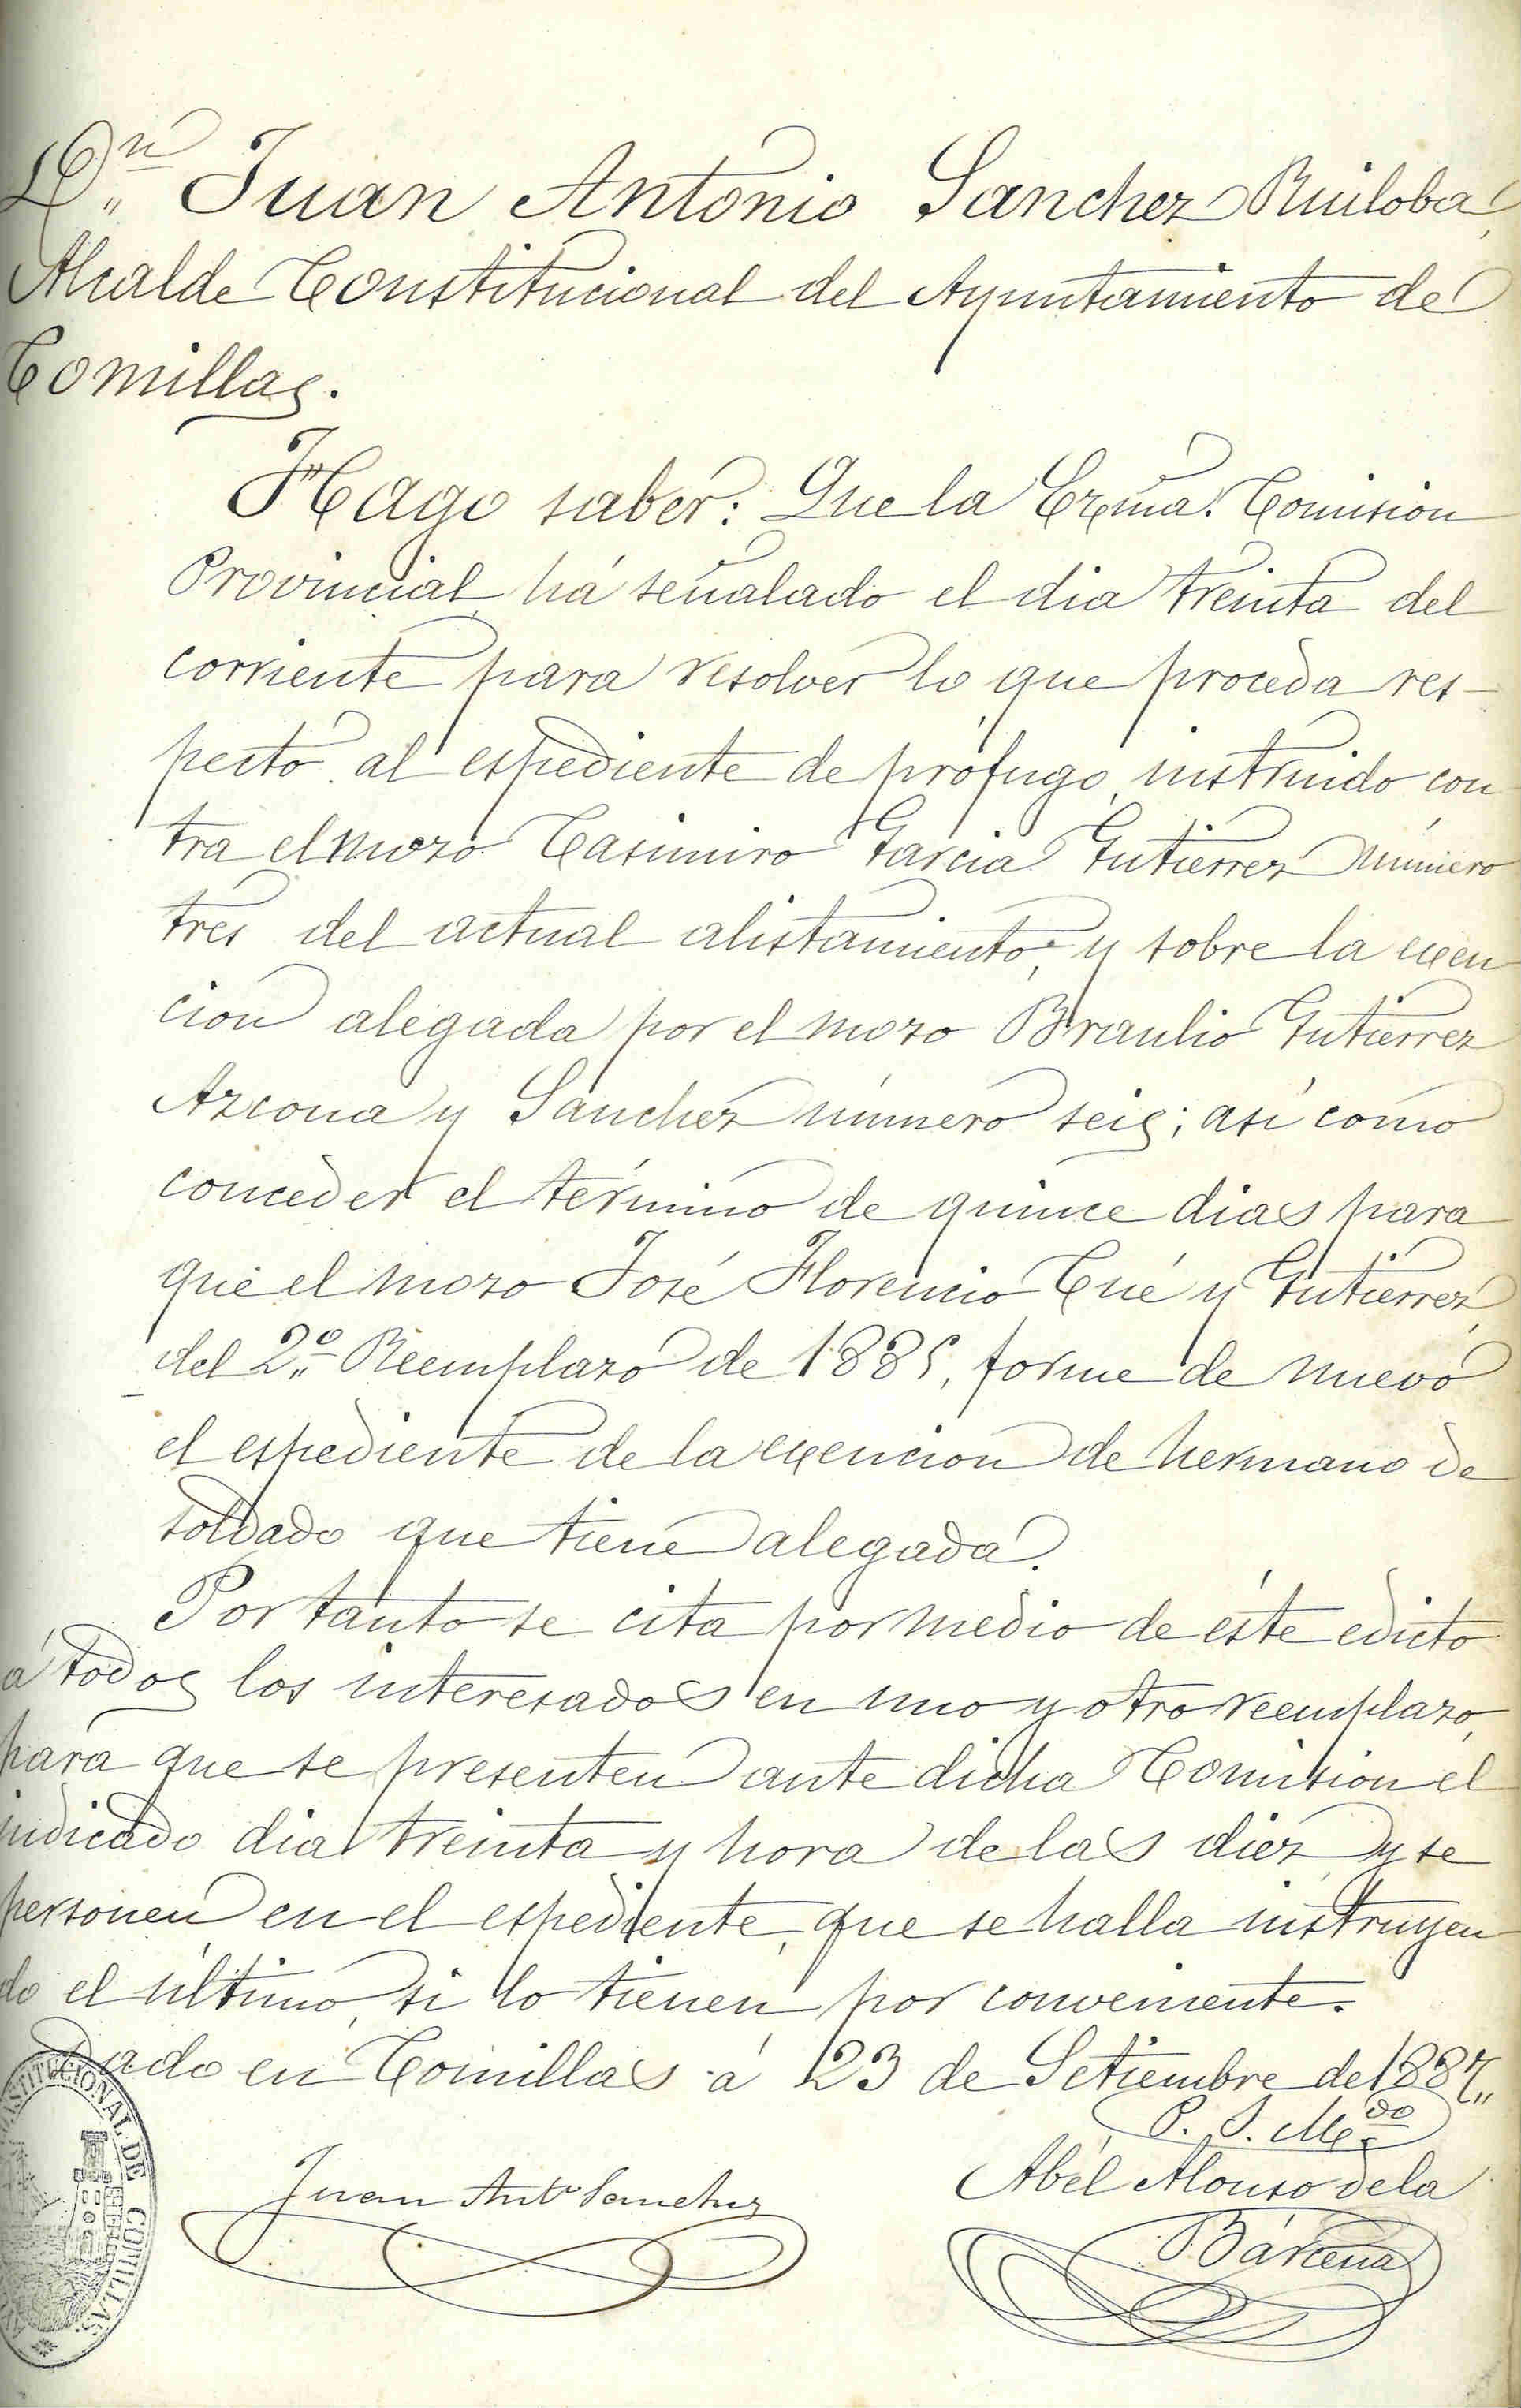 D.ⁿ Juan Antonio Sanchez Ruiloba,
Alcalde Constitucional del Ayuntamiento de
Comillas.
Hago saber: Que la Exma. Comision
Provincial há señalado el dia treinta del
corriente para resolver lo que proceda res-
pecto al espediente de prófugo, instruido con-
tra el mozo Casimiro Garcia Gutierrez número
tres del actual alistamiento, y sobre la exen-
cion alegada por el mozo Braulio Gutierrez
Azcona y Sanchez número seis; así como
conceder el término de quince dias para
que el mozo José Florencio Cué y Gutierrez,
del 2.º Reemplazo de 1885, forme de nuevo
el espediente de la exencion de hermano de
soldado que tiene alegada.
Por tanto se cita por medio de éste edicto
á todos los interesados en uno y otro reemplazo,
para que se presenten ante dicha Comision el
indicado dia treinta y hora de las diez y se
personen en el espediente, que se halla instruyen-
do el último, si lo tienen por conveniente.
Dado en Comillas á 23 de Setiembre de 1887.
P. S. M.ᵈᵒ
Juan Antº Sanchez
Abel Alonso de la
Bárcena
CONSTITUCIONAL DE COMILLAS